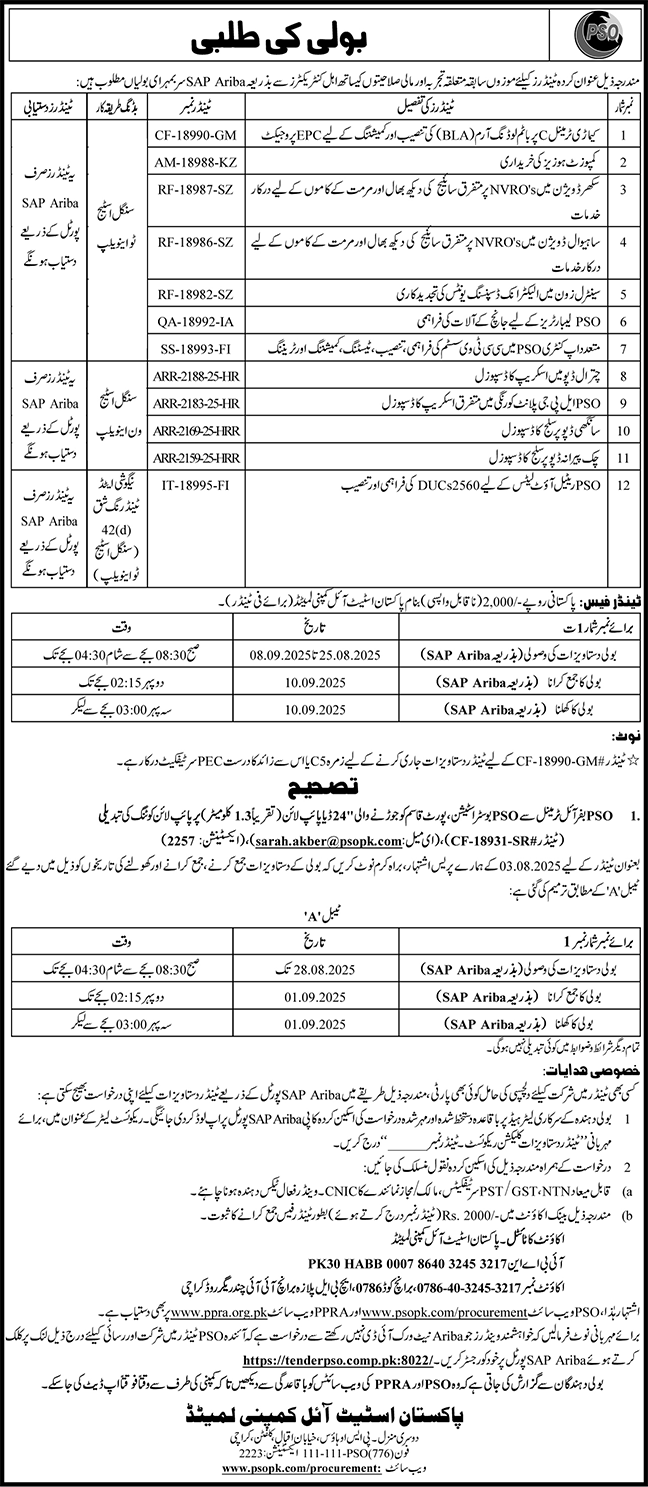 PSO
بولی کی طلبی
مندرجہ ذیل عنوان کردہ ٹینڈرز کیلئے موزوں سابقہ متعلقہ تجربہ اور مالی صلاحیتوں کیساتھ اہل کنٹریکٹرز سے بذریعہ SAP Ariba سربمہر ای بولیاں مطلوب ہیں:
نمبر شمار ٹینڈرز کی تفصیل ٹینڈر نمبر بڈنگ طریقہ کار ٹینڈرز دستیابی
1 کیماڑی ٹرمینل C پر باٹم لوڈنگ آرم (BLA) کی تنصیب اور کمیشننگ کے لیے EPC پروجیکٹ CF-18990-GM
2 کمپوزٹ ہوزیز کی خریداری AM-18988-KZ
3 سکھر ڈویژن میں NVRO's پر متفرق سائنیج کی دیکھ بھال اور مرمت کے کاموں کے لیے درکار خدمات RF-18987-SZ
4 ساہیوال ڈویژن میں NVRO's پر متفرق سائنیج کی دیکھ بھال اور مرمت کے کاموں کے لیے درکار خدمات RF-18986-SZ
5 سینٹرل زون میں الیکٹرانک ڈسپنسنگ یونٹس کی تجدید کاری RF-18982-SZ
6 PSO لیبارٹریز کے لیے جانچ کے آلات کی فراہمی QA-18992-IA
7 متعدد اپ کنٹری PSO میں سی سی ٹی وی سسٹم کی فراہمی، تنصیب، ٹیسٹنگ، کمیشننگ اور ٹریننگ SS-18993-FI
سنگل اسٹیج ٹو اینویلپ
یہ ٹینڈرز صرف SAP Ariba پورٹل کے ذریعے دستیاب ہونگے
8 چترال ڈپو میں اسکریپ کا ڈسپوزل ARR-2188-25-HR
9 PSO ایل پی جی پلانٹ کورنگی میں متفرق اسکریپ کا ڈسپوزل ARR-2183-25-HR
10 سانگھی ڈپو پر سلج کا ڈسپوزل ARR-2169-25-HRR
11 چک پیرانہ ڈپو پر سلج کا ڈسپوزل ARR-2159-25-HRR
سنگل اسٹیج ون اینویلپ
یہ ٹینڈرز صرف SAP Ariba پورٹل کے ذریعے دستیاب ہونگے
12 PSO ریٹیل آؤٹ لیٹس کے لیے 2560 DUCs کی فراہمی اور تنصیب IT-18995-FI
نیگوشی ایٹڈ ٹینڈرنگ شق 42(d) (سنگل اسٹیج ٹو اینویلپ)
یہ ٹینڈرز صرف SAP Ariba پورٹل کے ذریعے دستیاب ہونگے
ٹینڈر فیس: پاکستانی روپے -/2,000 (ناقابل واپسی) بنام پاکستان اسٹیٹ آئل کمپنی لمیٹڈ (برائے فی ٹینڈر)۔
برائے نمبر شمار 1 ت تاریخ وقت
بولی دستاویزات کی وصولی (بذریعہ SAP Ariba) 25.08.2025 تا 08.09.2025 صبح 08:30 بجے سے شام 04:30 بجے تک
بولی کا جمع کرانا (بذریعہ SAP Ariba) 10.09.2025 دوپہر 02:15 بجے تک
بولی کا کھلنا (بذریعہ SAP Ariba) 10.09.2025 سہ پہر 03:00 بجے سے لیکر
نوٹ:
☆ ٹینڈر #CF-18990-GM کے لیے ٹینڈر دستاویزات جاری کرنے کے لیے زمرہ C5 یا اس سے زائد کا درست PEC سرٹیفکیٹ درکار ہے۔
تصحیح
1. PSO بفر آئل ٹرمینل سے PSO بوسٹر اسٹیشن، پورٹ قاسم کو جوڑنے والی "24 ڈایا پائپ لائن (تقریباً 1.3 کلومیٹر) پر پائپ لائن کوٹنگ کی تبدیلی
(ٹینڈر #CF-18931-SR)، (ای میل: sarah.akber@psopk.com)، (ایکسٹینشن: 2257)
بعنوان ٹینڈر کے لیے 03.08.2025 کے ہمارے پریس اشتہار، براہ کرم نوٹ کریں کہ بولی کے دستاویزات جمع کرنے، جمع کرانے اور کھولنے کی تاریخوں کو ذیل میں دیے گئے
ٹیبل 'A' کے مطابق ترمیم کی گئی ہے:
ٹیبل 'A'
برائے نمبر شمار نمبر 1 تاریخ وقت
بولی دستاویزات کی وصولی (بذریعہ SAP Ariba) 28.08.2025 تک صبح 08:30 بجے سے شام 04:30 بجے تک
بولی کا جمع کرانا (بذریعہ SAP Ariba) 01.09.2025 دوپہر 02:15 بجے تک
بولی کا کھلنا (بذریعہ SAP Ariba) 01.09.2025 سہ پہر 03:00 بجے سے لیکر
تمام دیگر شرائط و ضوابط میں کوئی تبدیلی نہیں ہوگی۔
خصوصی ہدایات:
کسی بھی ٹینڈر میں شرکت کیلئے دلچسپی کی حامل کوئی بھی پارٹی، مندرجہ ذیل طریقے میں SAP Ariba پورٹل کے ذریعے ٹینڈر دستاویزات کیلئے اپنی درخواست بھیج سکتی ہے:
1 بولی دہندہ کے سرکاری لیٹر ہیڈ پر باقاعدہ دستخط شدہ اور مہر شدہ درخواست کی اسکین کردہ کاپی SAP Ariba پورٹل پر اپ لوڈ کر دی جائیگی۔ ریکوئسٹ لیٹر کے عنوان میں، برائے
مہربانی "ٹینڈر دستاویزات کلیکشن ریکوئسٹ۔ ٹینڈر نمبر______" درج کریں۔
2 درخواست کے ہمراہ مندرجہ ذیل کی اسکین کردہ نقول منسلک کی جائیں:
a) قابل میعاد PST/GST،NTN سرٹیفکیٹس، مالک/مجاز نمائندے کا CNIC۔ وینڈر فعال ٹیکس دہندہ ہونا چاہئے۔
b) مندرجہ ذیل بینک اکاؤنٹ میں -/Rs. 2000 (ٹینڈر نمبر درج کرتے ہوئے) بطور ٹینڈر فیس جمع کرانے کا ثبوت۔
اکاؤنٹ کا ٹائٹل۔ پاکستان اسٹیٹ آئل کمپنی لمیٹڈ
آئی بی اے این PK30 HABB 0007 8640 3245 3217
اکاؤنٹ نمبر 0786-40-3245-3217، برانچ کوڈ 0786، ایچ بی ایل پلازہ برانچ آئی آئی چندریگر روڈ کراچی
اشتہار ہٰذا، PSO ویب سائٹ www.psopk.com/procurement اور PPRA ویب سائٹ www.ppra.org.pk پر بھی دستیاب ہے۔
برائے مہربانی نوٹ فرمالیں کہ خواہشمند وینڈرز جو Ariba نیٹ ورک آئی ڈی نہیں رکھتے سے درخواست ہے کہ آئندہ PSO ٹینڈر میں شرکت اور رسائی کیلئے درج ذیل لنک پر کلک
کرتے ہوئے SAP Ariba پورٹل پر خود کو رجسٹر کریں۔ https://tenderpso.comp.pk:8022/
بولی دہندگان سے گزارش کی جاتی ہے کہ وہ PSO اور PPRA کی ویب سائٹس کو باقاعدگی سے دیکھیں تاکہ کمپنی کی طرف سے وقتاً فوقتاً اپ ڈیٹ کی جا سکے۔
پاکستان اسٹیٹ آئل کمپنی لمیٹڈ
دوسری منزل۔ پی ایس او ہاؤس، خیابان اقبال، کلفٹن، کراچی
فون (776)111-111-PSO ایکسٹینشن: 2223
ویب سائٹ: www.psopk.com/procurement